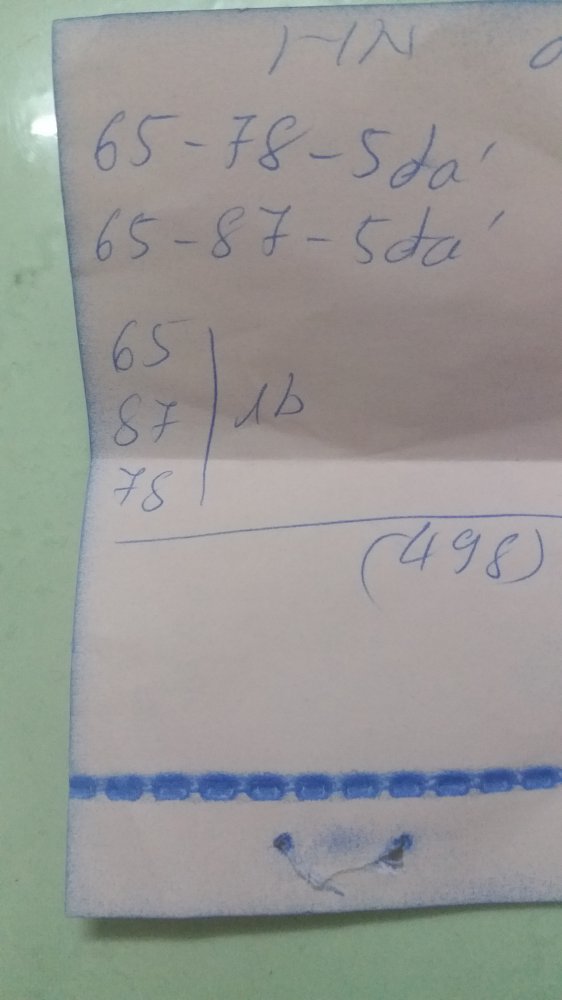 HN
65-78-5đá
65-87-5đá
65
87 1b
78
(498)